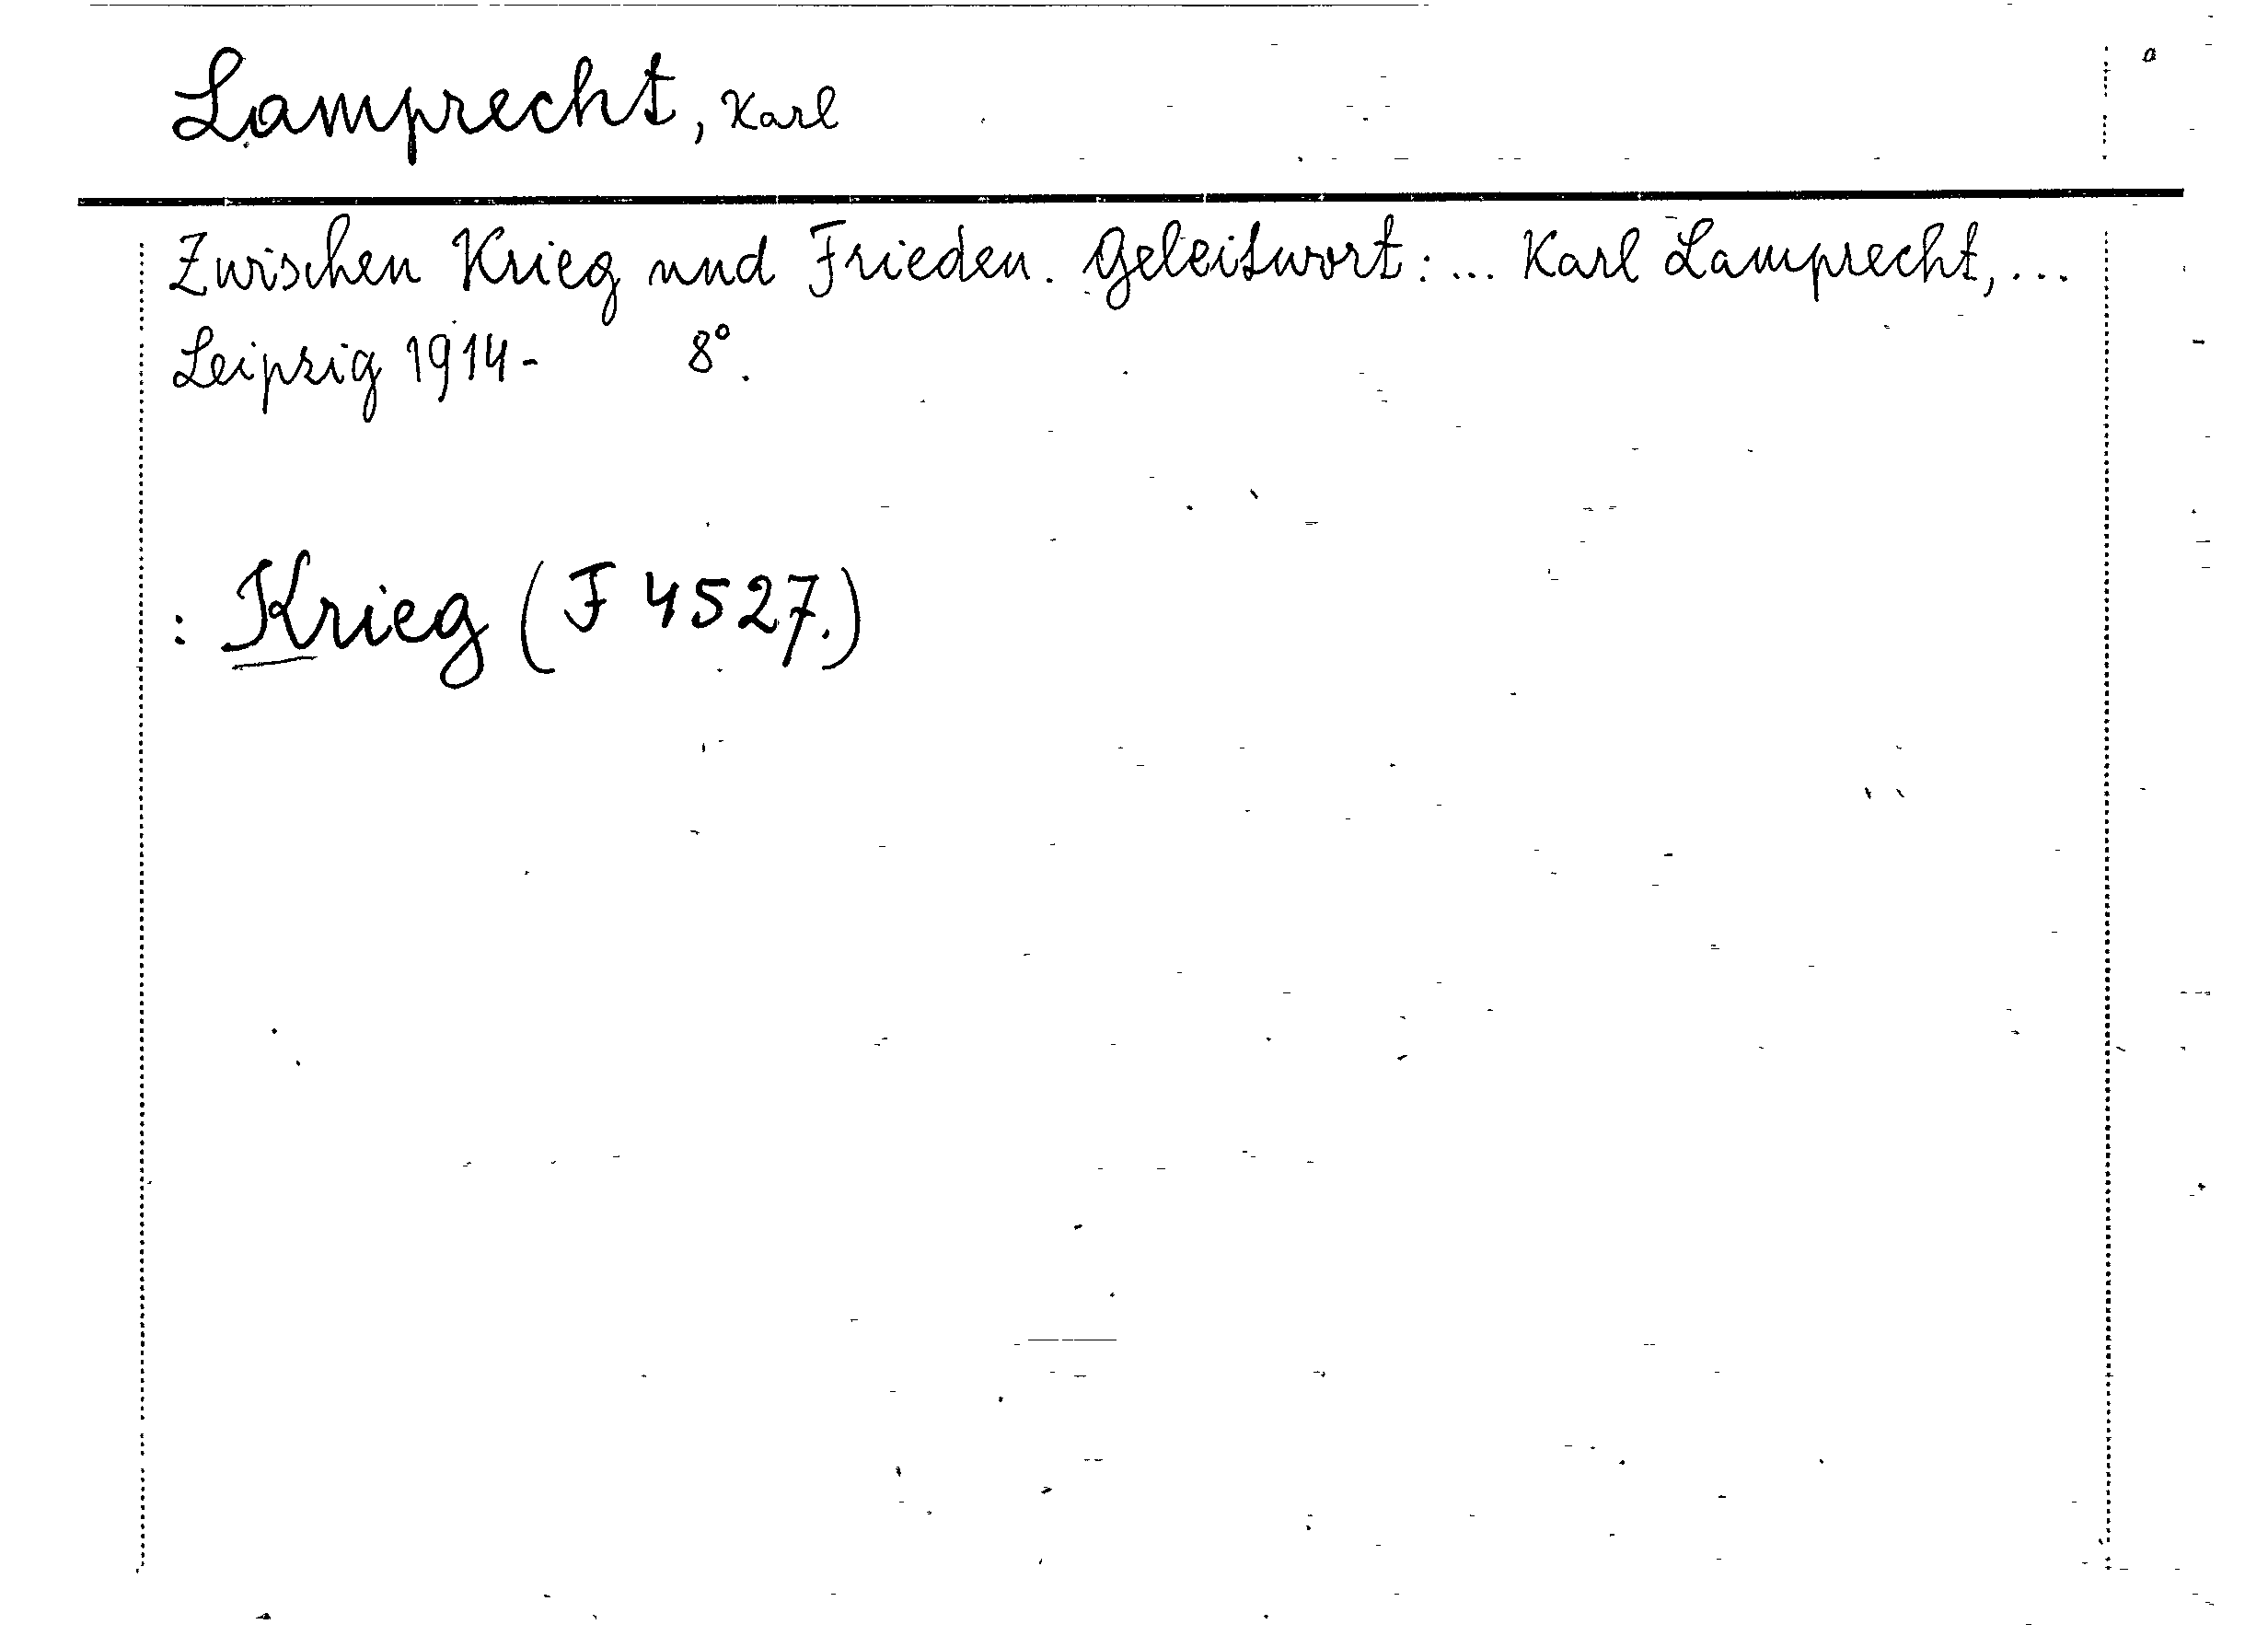 Lamprecht, Karl
Zwischen Krieg und Frieden. Geleitwort: ... Karl Lamprecht, ...
Leipzig 1914- 8°.
: Krieg (F 4527.)